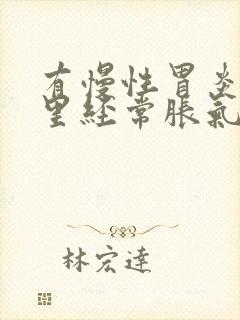 有慢性胃炎
里经常脹氣
林宏達